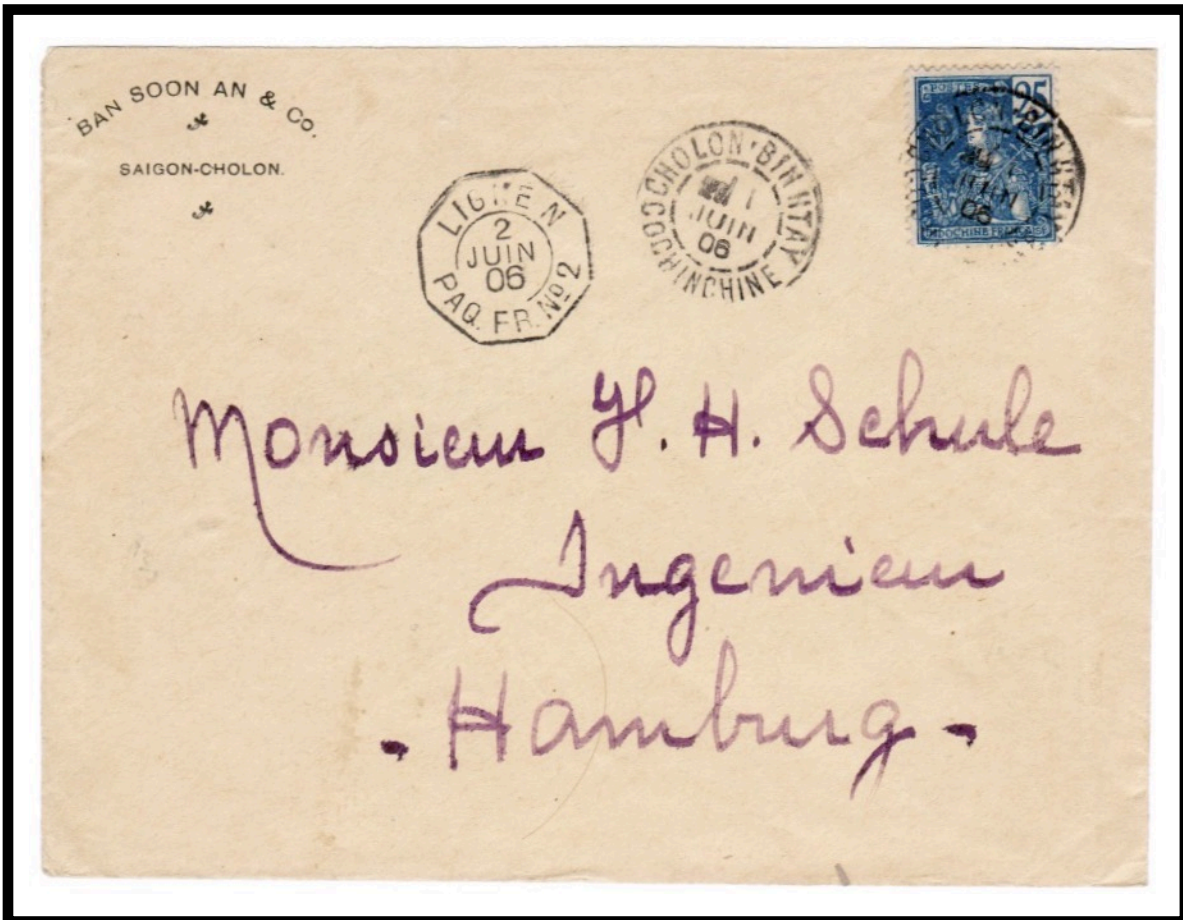 BAN SOON AN & Co.
SAIGON-CHOLON.
LIGNE N
2
JUIN
06
PAQ. FR. Nº2
CHOLON-BINHTAY
1
JUIN
06
COCHINCHINE
POSTES
25
JUIN
06
INDOCHINE FRANÇAISE
Monsieur H. H. Schule
Ingenieur
- Hamburg -